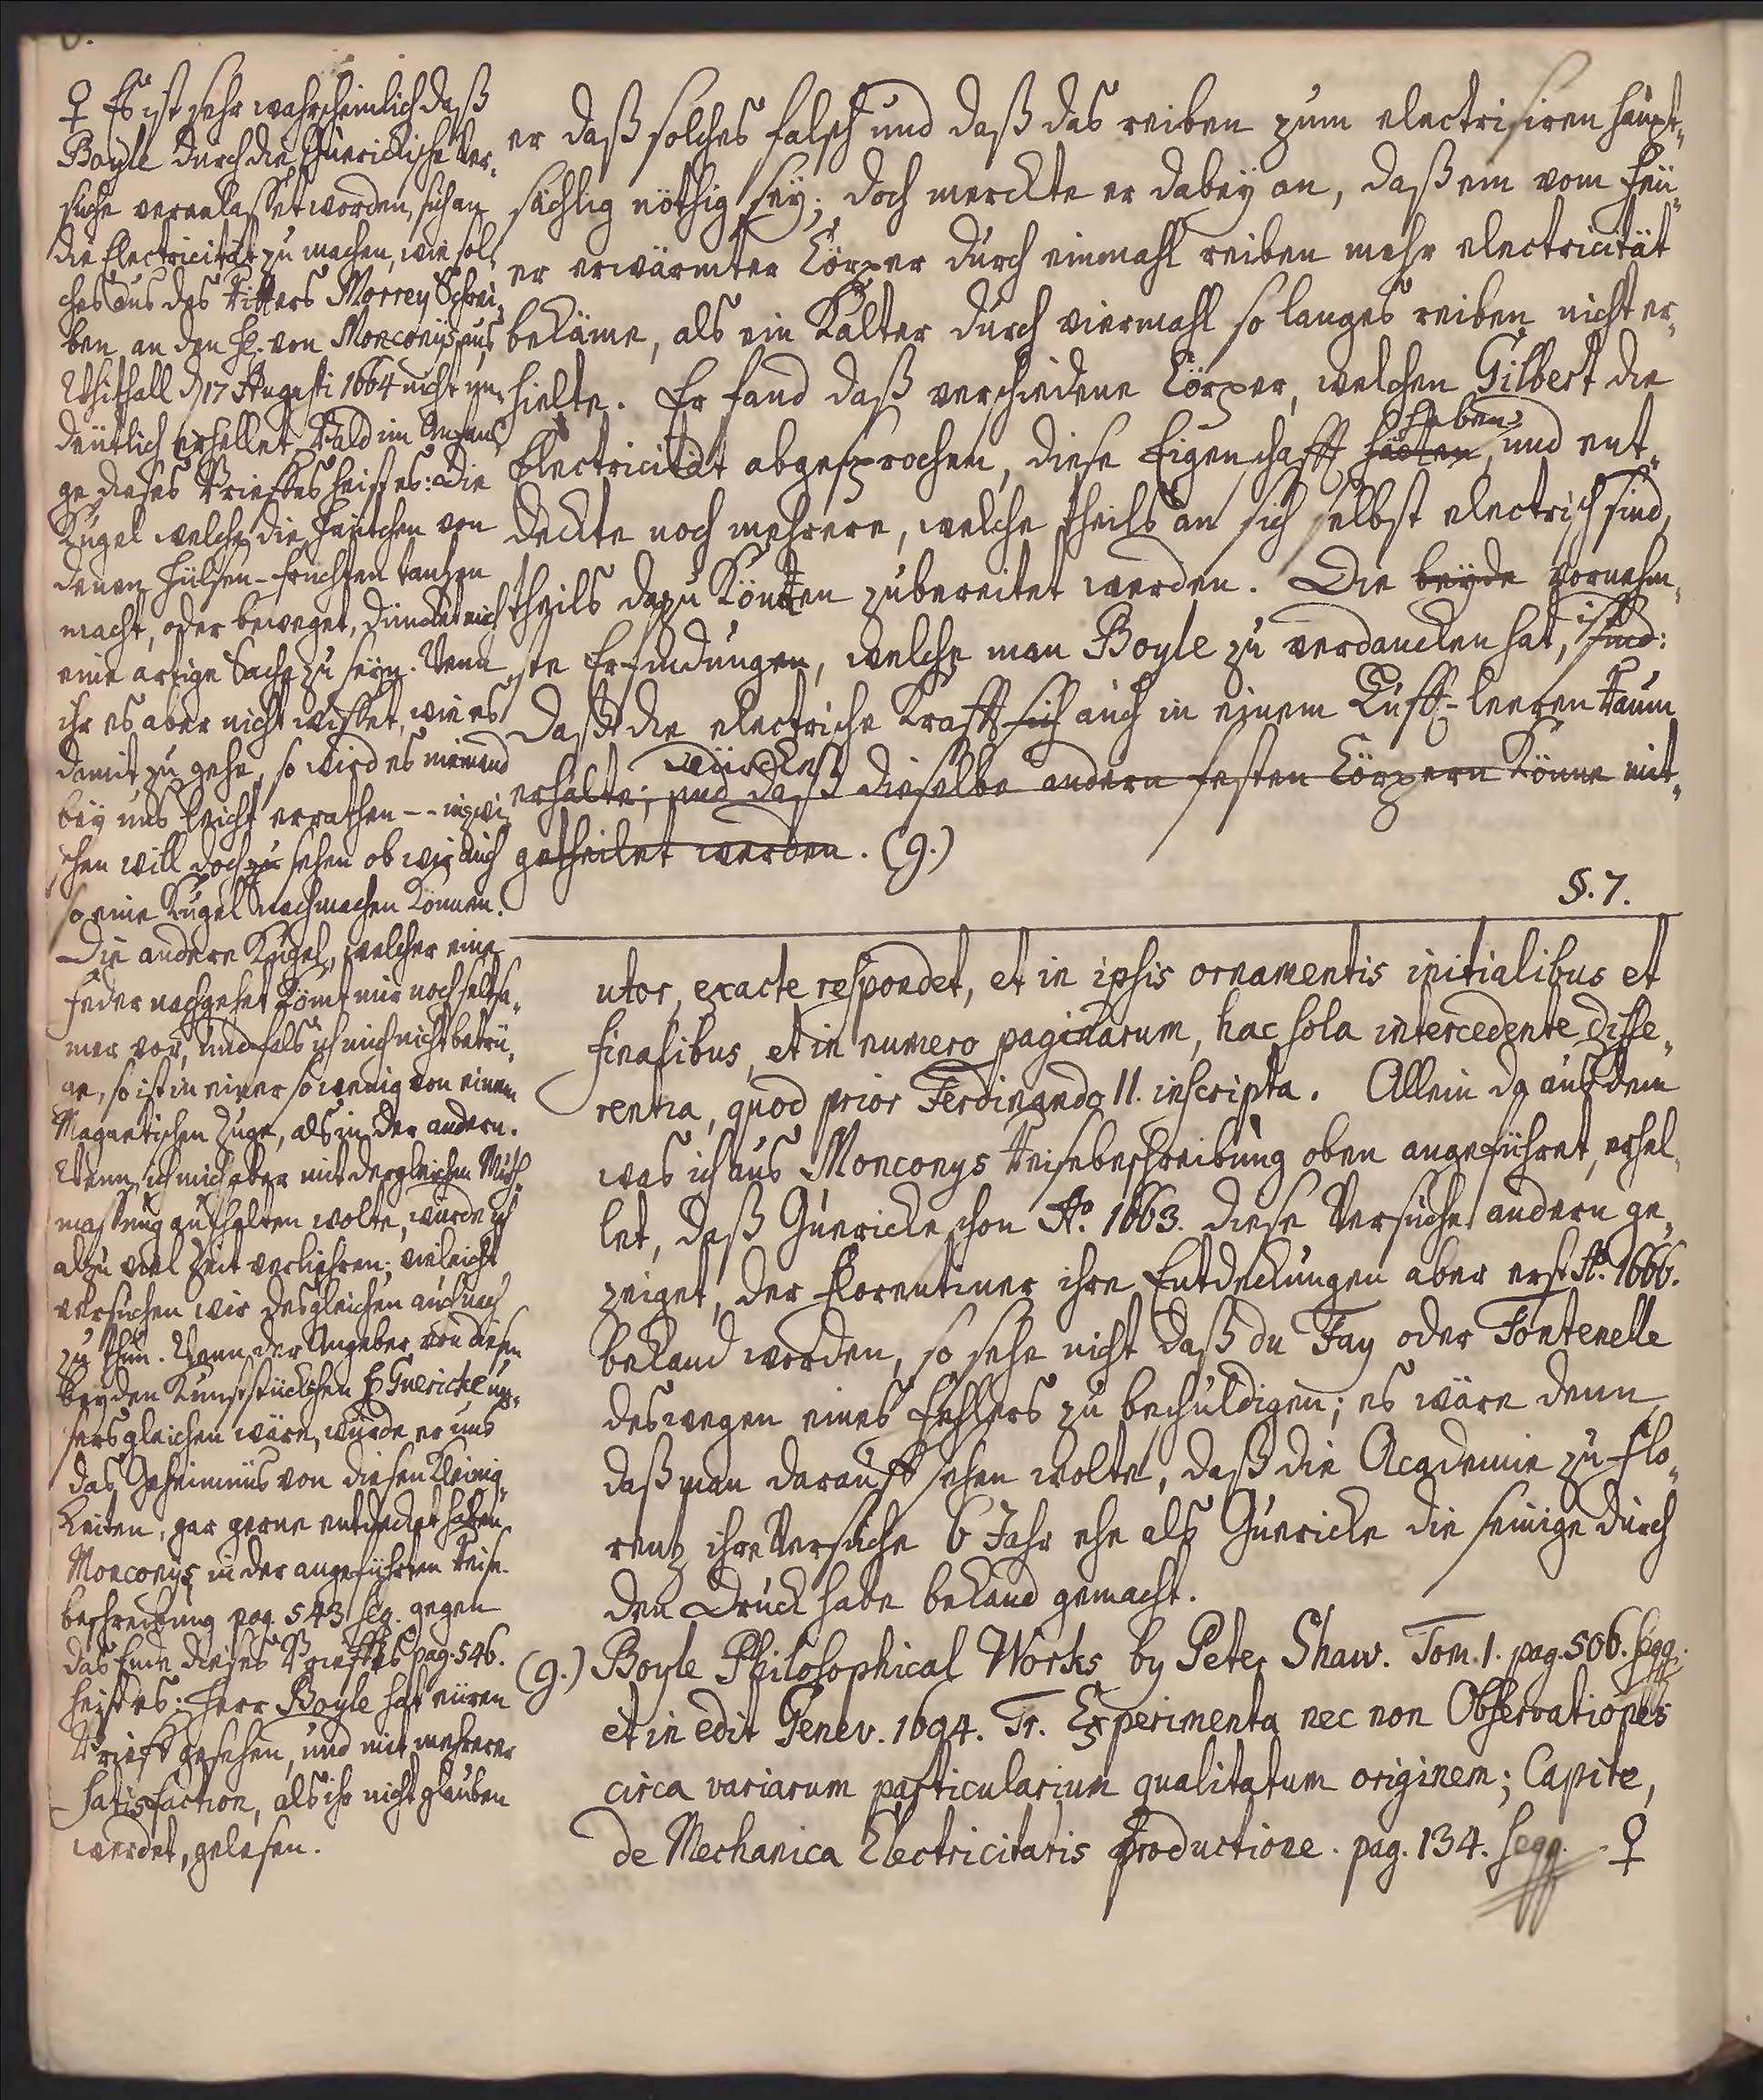 ♀ Es ist sehr wahrscheinlich daß
Boyle durch die Guerickische Ver-
suche veranlasset worden, sich an
die Electricität zu machen, wie sol-
ches aus des Ritters Morrey Schrei-
ben an den H. von Monconys aus
Whithall d. 17 Augusti 1664 nicht un-
deutlich erhellet. Bald im Anfan-
ge dieses Brieffes heist es: die
Kugel welche die Häutchen von
denen Hülsen-Früchten tantzen
macht, oder beweget, düncket mich
eine artige Sache zu seyn. Wenn
ihr es aber nicht wisset, wie es
damit zu gehe, so wird es niemand
bey uns leicht errathen -- inzwi-
schen will doch zu sehen ob wir auch
so eine Kugel nachmachen können.
Die andere Kugel, welcher eine
Feder nachgehet kömt mir noch seltsa-
mer vor, und fals ich mich nicht betrü-
ge, so ist in einer so wenig von einem
Magnetischen Zuge, als in der andern.
Wenn ich mich aber mit dergleichen Muth-
massung aufhalten wolte, würde ich
alzu viel Zeit verliehren; vieleicht
versuchen wir desgleichen auch nach
zu thun. Wann der Angeber von diesen
beyden Kunststückchen H Guericke un-
sers gleichen wäre, würde er uns
das Geheimnüs von diesen Kleinig-
keiten, gar gerne entdecket haben
Monconys in der angeführten Reise-
beschreibung pag. 543 seq. gegen
das Ende dieses Brieffes pag. 546.
heist es: Herr Boyle hat eüren
Brieff gesehen, und mit mehrerer
Satisfaction, als ihr nicht glauben
werdet, gelesen.
er daß solches falsch und daß das reiben zum electrisiren haupt-
sächlig nöthig sey; doch merckte er dabey an, daß ein vom Feü-
er erwärmter Cörper durch einmahl reiben mehr electricität
bekäme, als ein Kalter durch viermahl so langes reiben nicht er-
hielte. Er fand daß verschiedene Cörper, welchen Gilbert die
haben
Electricität abgesprochen, diese Eigenschafft hätten, und ent-
deckte noch mehrere, welche theils an sich selbst electrisch sind,
theils dazu könten zubereitet werden. Die beyde vornehm-
ist
ste Erfindungen, welche man Boyle zu verdancken hat, sind:
Daß die electrische Krafft sich auch in einem Lufft-leeren Raum
würcke
erhalte; und daß dieselbe andern festen Cörpern könne mit-
getheilet werden. (g.)
§. 7.
utor, exacte respondet, et in ipsis ornamentis initialibus et
finalibus, et in numero paginarum, hac sola intercedente diffe-
rentia, quod prior Ferdinando II. inscripta. Allein da aus dem
was ich aus Monconys Reisebeschreibung oben angeführet, erhel-
let, daß Guericke schon Ao. 1663. diese Versuche andern ge-
zeiget, der Florentiner ihre Entdeckungen aber erst Ao. 1666.
bekand worden, so sehe nicht daß du Fay oder Fontenelle
deswegen eines Fehlers zu beschuldigen; es wäre denn
daß man darauff sehen wolte, daß die Academie zu Flo-
rentz ihre Versuche 6 Jahr ehe als Guericke die seinige durch
den Druck habe bekand gemacht.
(g.) Boyle Philosophical Works by Peter Shaw. Tom. 1. pag. 506. seqq.
et in edit Genev. 1694. Tr. Experimenta nec non Observationes
circa variarum particularium qualitatum originem; Capite,
de Mechanica Electricitatis productione. pag. 134. seqq. ♀